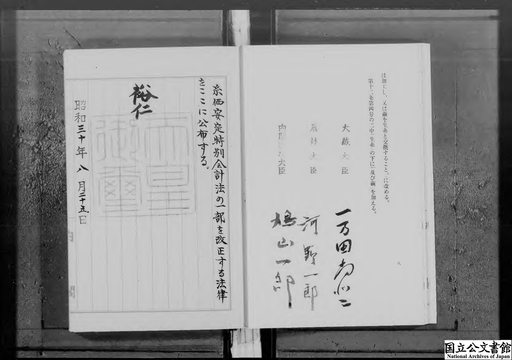 糸価安定特別会計法の一部を改正する法律
をここに公布する。
裕仁
昭和三十年八月二十五日
大蔵大臣
一万田尚登
農林大臣
河野一郎
内閣総理大臣
鳩山一郎
国立公文書館
National Archives of Japan